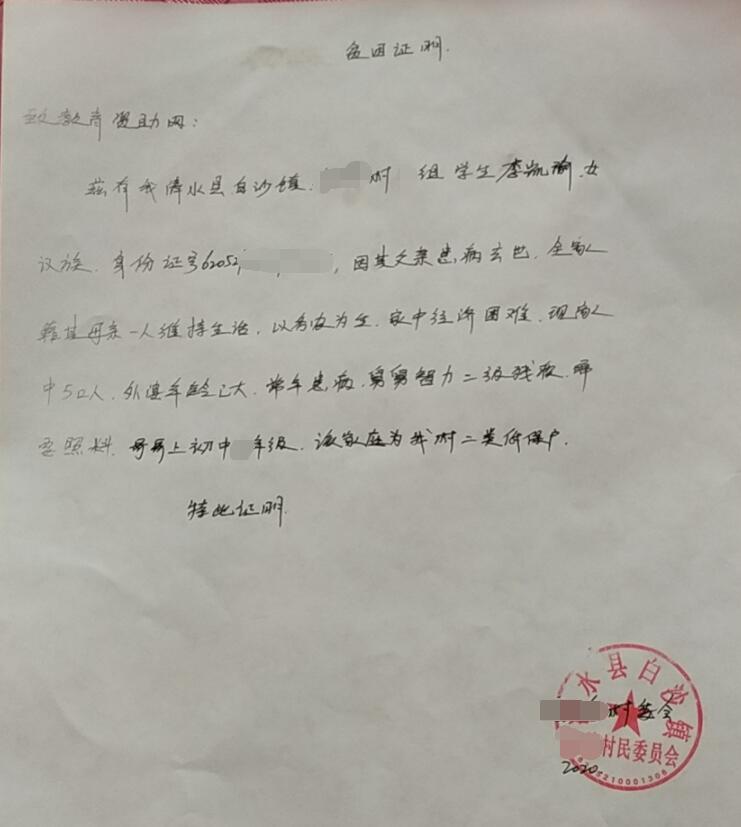 贫困证明.
致教育资助网:
兹有我清水县白沙镇. 村 组学生李凯瑜,女
汉族. 身份证号62052, 因其父亲患病去世. 全家人
靠其母亲一人维持生活, 以务农为生, 家中经济困难. 现家人
中5口人, 外婆年龄已大, 常年患病, 舅舅智力二级残疾. 需
要照料. 哥哥上初中 年级. 该家庭为我村二类低保户.
特此证明.
水县白沙镇
村委会
村民委员会
2020
5210001308